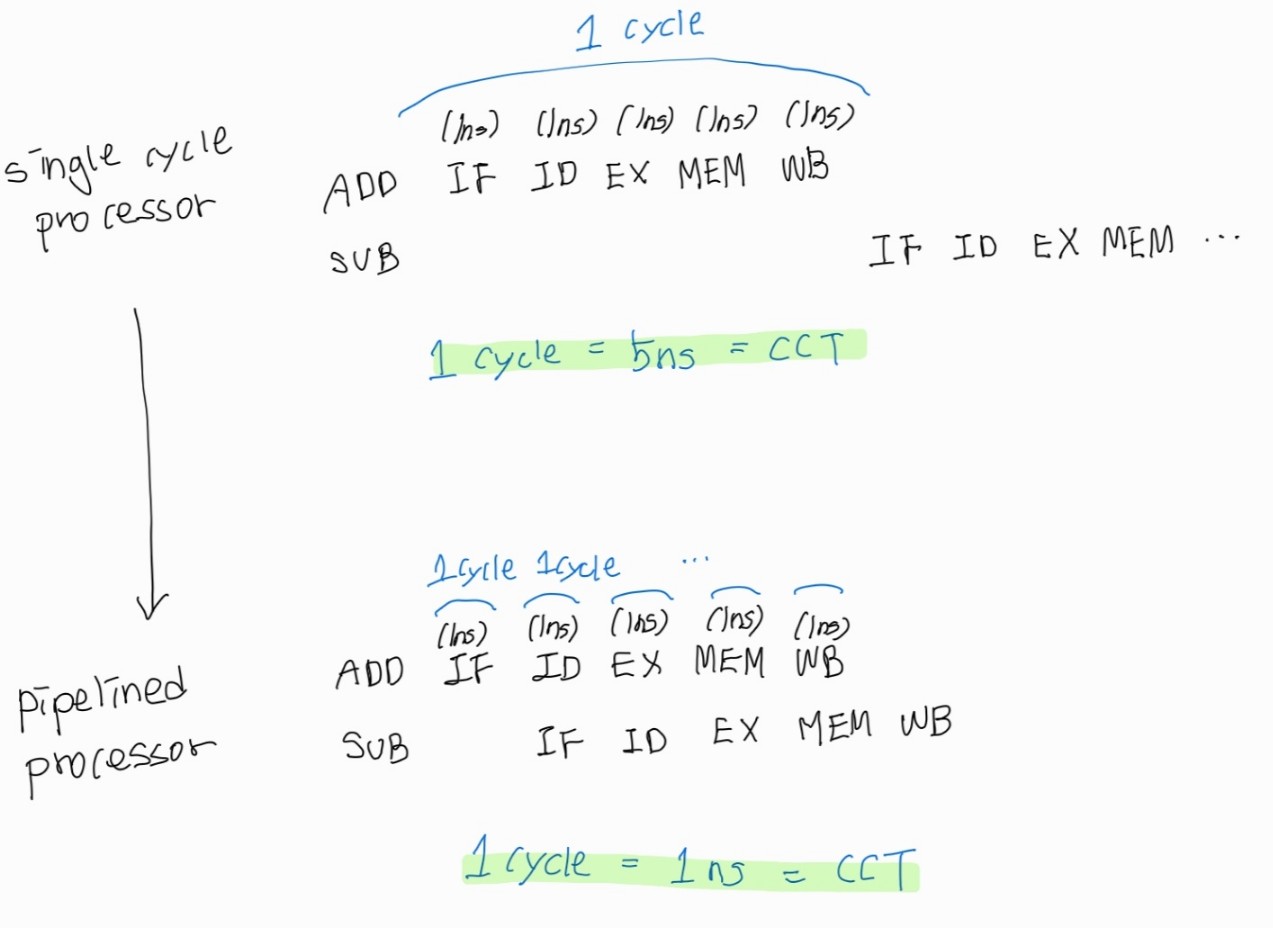 1 cycle
(1ns) (1ns) (1ns) (1ns) (1ns)
single cycle
processor
ADD IF ID EX MEM WB
SUB IF ID EX MEM ...
1 cycle = 5ns = CCT
1cycle 1cycle ...
(1ns) (1ns) (1ns) (1ns) (1ns)
ADD IF ID EX MEM WB
pipelined
processor
SUB IF ID EX MEM WB
1 cycle = 1ns = CCT